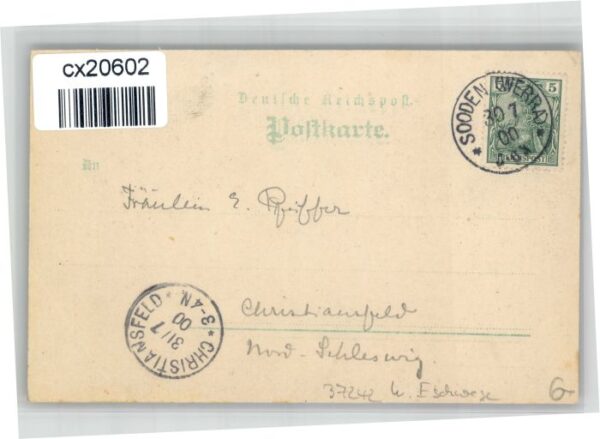 cx20602
Deutsche Reichspost.
Postkarte.
An
Fräulein E. Pfeiffer
Christiansfeld
Nord-Schleswig.
37242 b. Eschwege
6-
SOODEN (WERRA)
30 7
00
5
REICHSPOST
* CHRISTIANSFELD *
31/7
00
3-4N